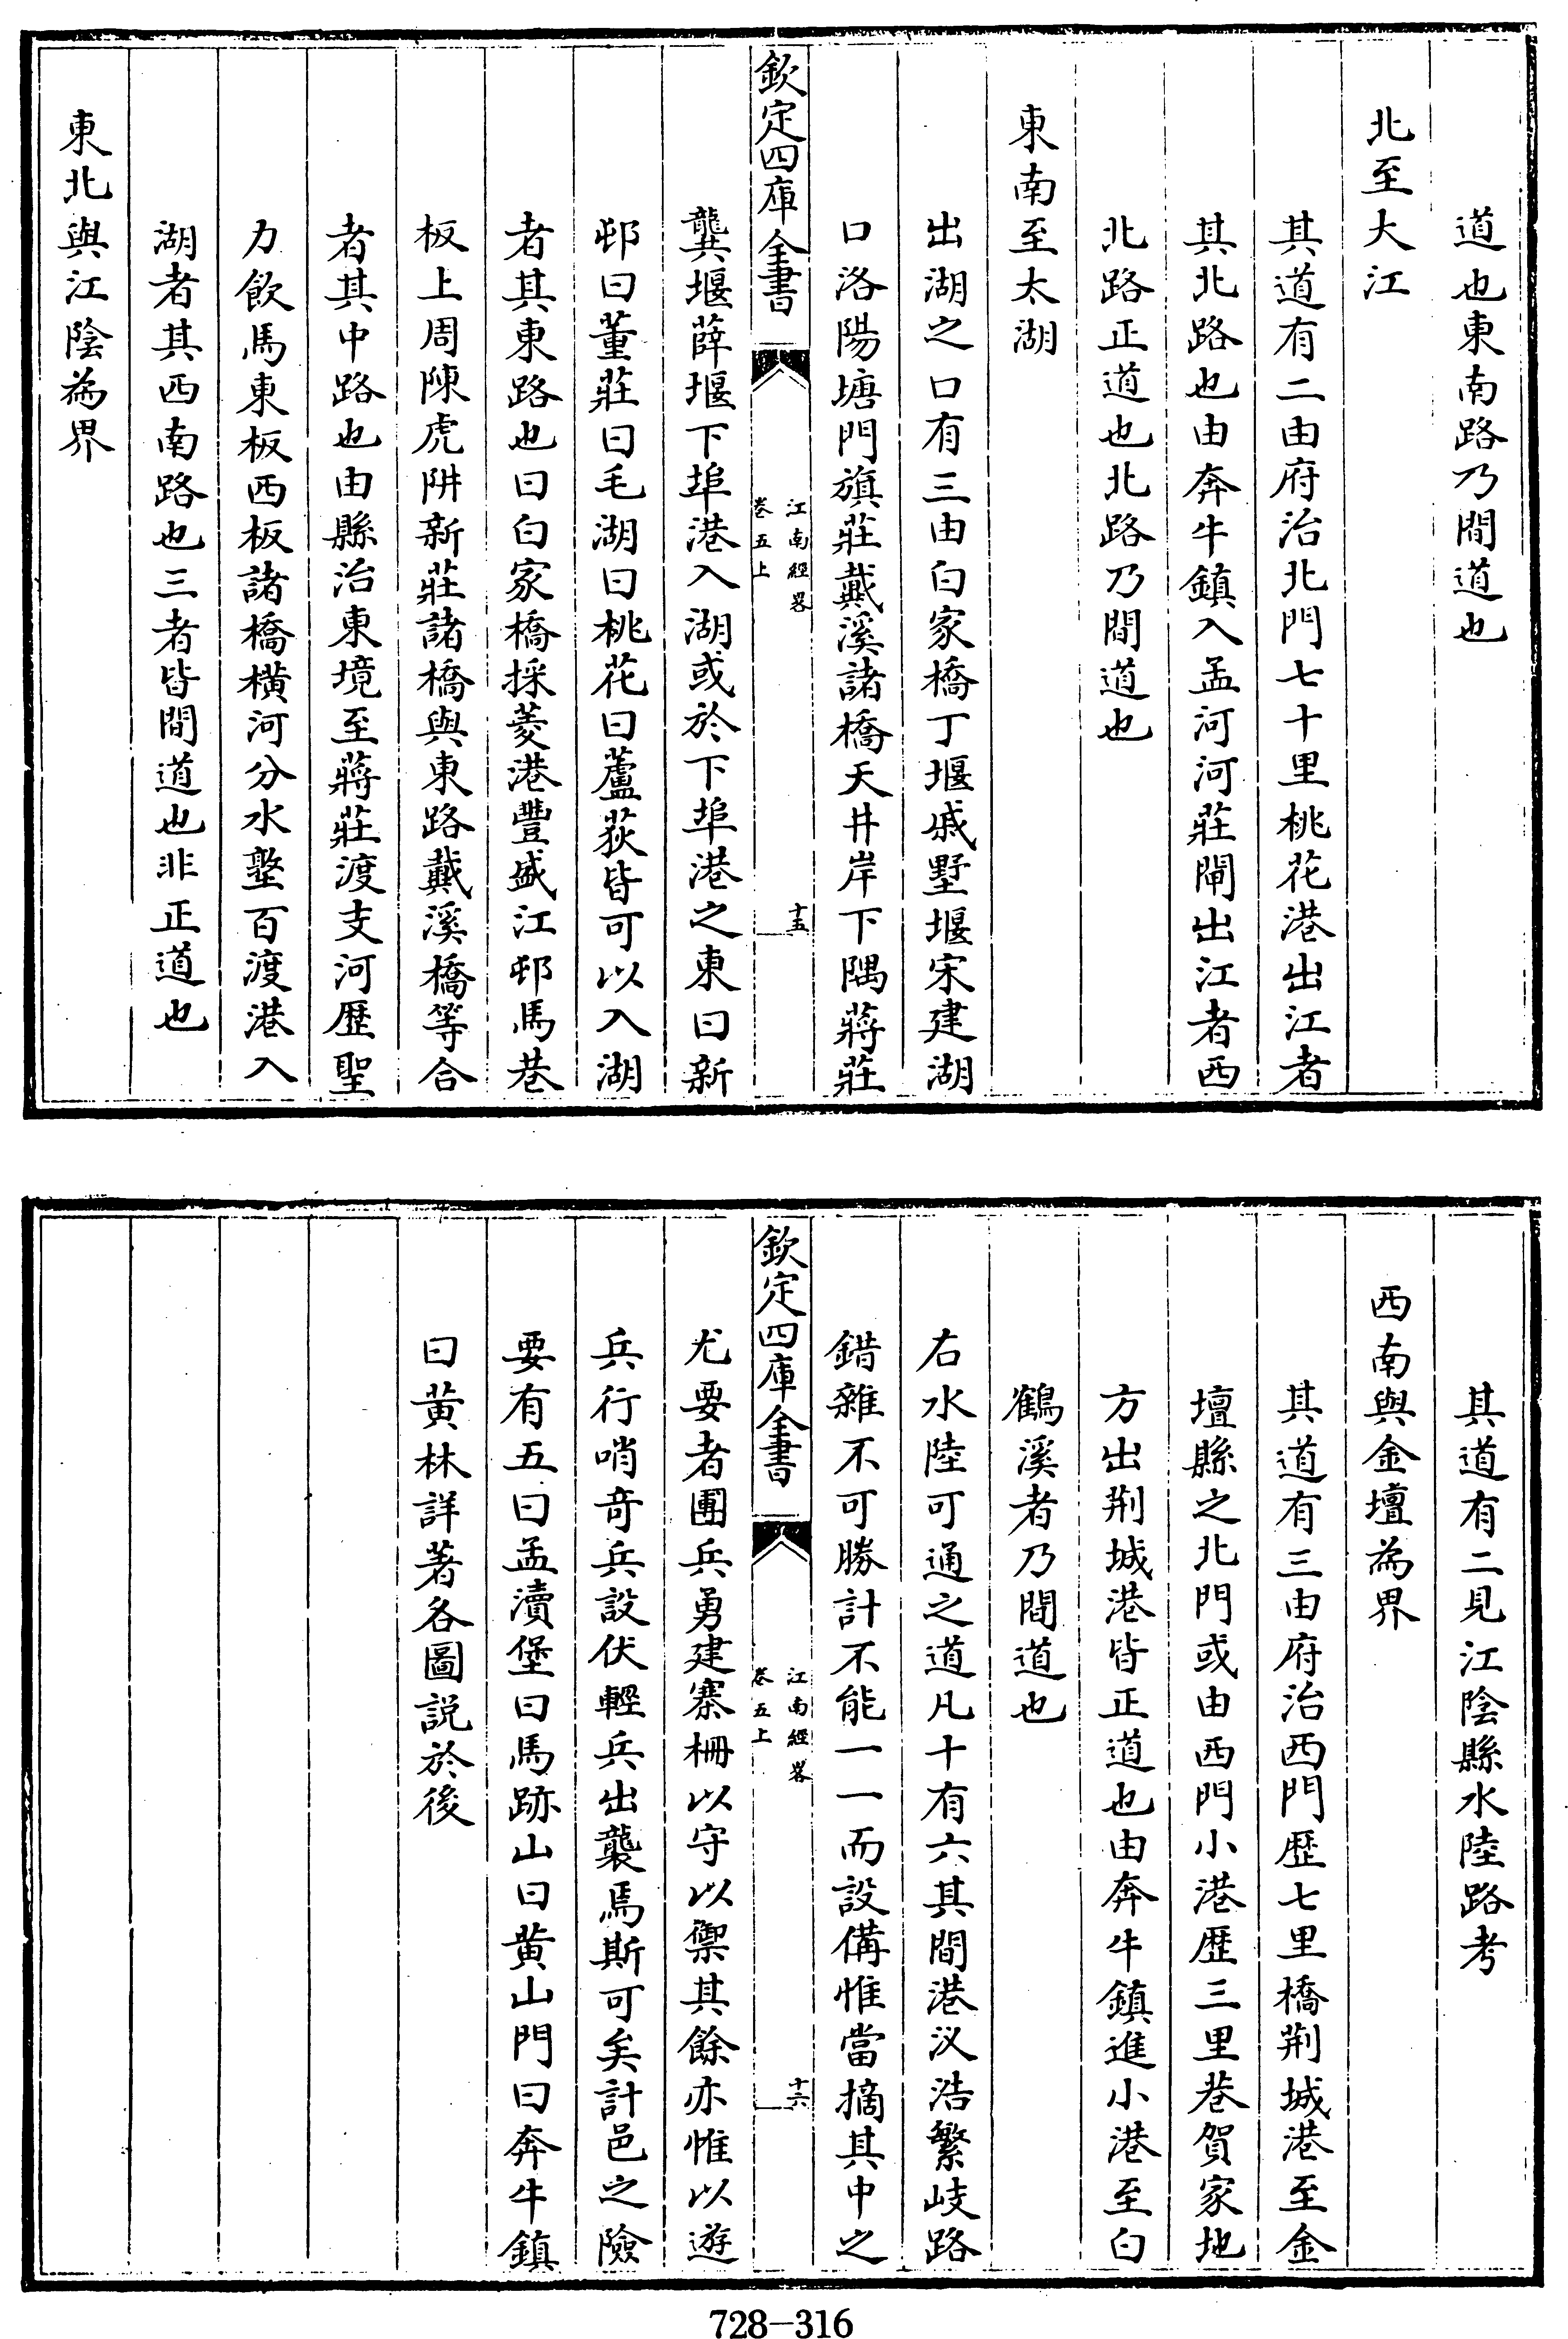 道也東南路乃間道也
北至大江
其道有二由府治北門七十里桃花港出江者
其北路也由奔牛鎮入孟河河莊閘出江者西
北路正道也北路乃間道也
東南至太湖
出湖之口有三由白家橋丁堰戚墅堰宋建湖
口洛陽塘門旗莊戴溪諸橋天井岸下隅蔣莊
欽定四庫全書
江南經畧
卷五上
十五
龔堰薛堰下埠港入湖或於下埠港之東曰新
邨曰董莊曰毛湖曰桃花曰蘆荻皆可以入湖
者其東路也曰白家橋採菱港豐盛江邨馬巷
板上周陳虎阱新莊諸橋與東路戴溪橋等合
者其中路也由縣治東境至蔣莊渡支河歷聖
力飲馬東板西板諸橋橫河分水壑百渡港入
湖者其西南路也三者皆間道也非正道也
東北與江陰為界
其道有二見江陰縣水陸路考
西南與金壇為界
其道有三由府治西門歷七里橋荆城港至金
壇縣之北門或由西門小港歷三里巷賀家地
方出荆城港皆正道也由奔牛鎮進小港至白
鶴溪者乃間道也
右水陸可通之道凡十有六其間港汊浩繁岐路
錯雜不可勝計不能一一而設備惟當摘其中之
欽定四庫全書
江南經畧
卷五上
十六
尤要者團兵勇建寨柵以守以禦其餘亦惟以遊
兵行哨奇兵設伏輕兵出襲焉斯可矣計邑之險
要有五曰孟瀆堡曰馬跡山曰黃山門曰奔牛鎮
曰黃林詳著各圖説於後
728-316